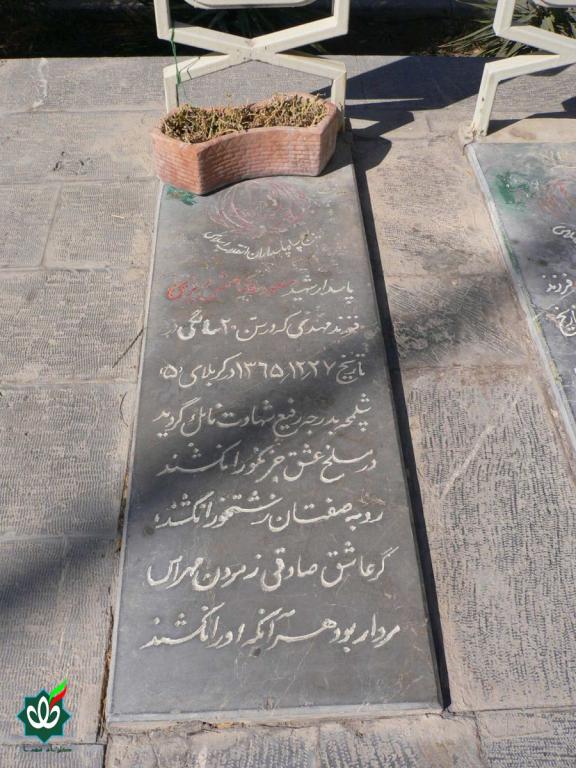 سپاه پاسداران انقلاب اسلامی
پاسدار شهید مسعود
فرزند مهدی که در سن ۲۰ سالگی در
تاریخ ۱۳۶۵/۱۲/۲۷ در کربلای ۵
شلمچه بدرجه رفیع شهادت نائل گردید
در مسلخ عشق جز نکو را نکشند
روبه صفتان زشتخو را نکشند
گر عاشق صادقی ز مردن مهراس
مردار بود هر آنکه او را نکشند
فرزند
تاریخ